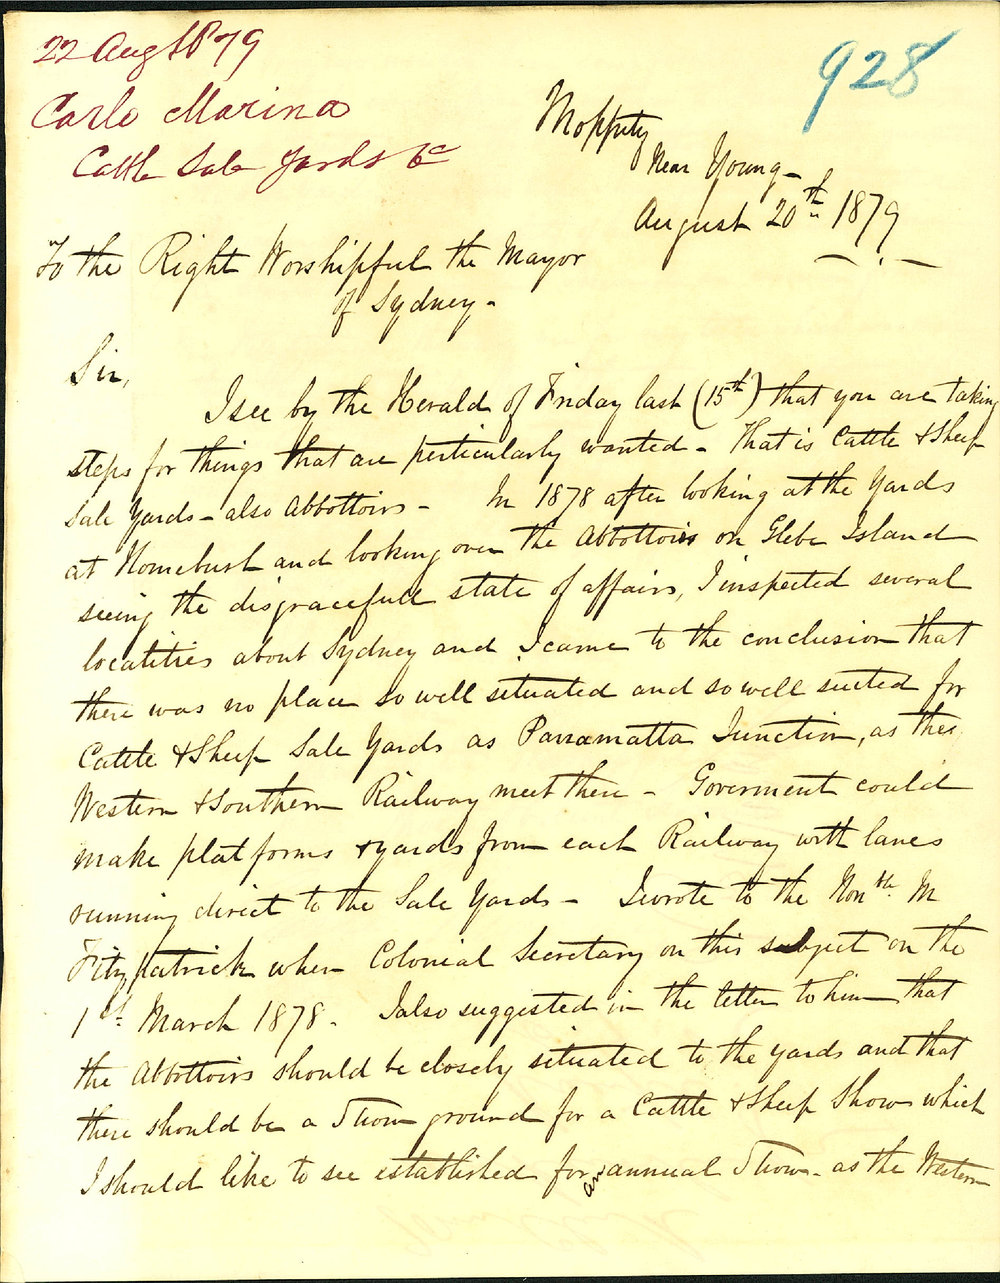 22 Aug 1879
928
Carlo Marina
Cattle Sale Yards &c
Moppity
Near Young -
August 20th 1879
To the Right Worshipful the Mayor
of Sydney -
Sir,
I see by the Herald of Friday last (15th) that you are taking
steps for things that are perticularly wanted - That is Cattle & Sheep
Sale Yards - also Abbottoirs - In 1878 after looking at the Yards
at Homebush and looking over the Abbottoirs on Glebe Island
seeing the disgracefull state of affairs, I inspected several
localities about Sydney and I came to the conclusion that
there was no place so well situated and so well suited for
Cattle & Sheep Sale Yards as Parramatta Junction, as the
Western & Southern Railway meet there - Goverment could
make platforms & yards from each Railway with lanes
running direct to the Sale Yards - I wrote to the Honble. M
Fitzpatrick when Colonial Secretary on this subject on the
1st March 1878 - I also suggested in the letter to him that
the Abbottoirs should be closely situated to the yards and that
there should be a Show ground for a Cattle & Sheep Show which
I should like to see established for an annual Show - as the Western